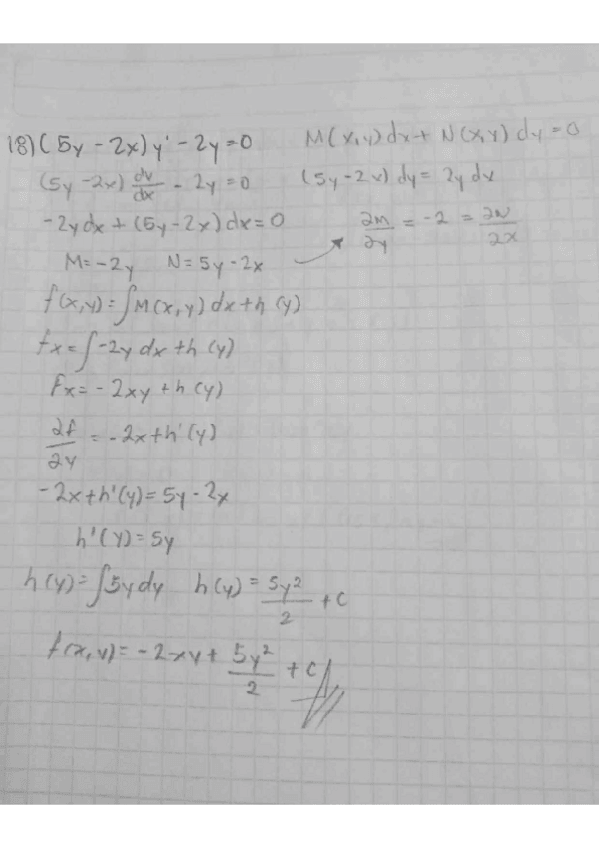 18) (5y - 2x) y' - 2y = 0    M(x,y) dx + N(x,y) dy = 0
(5y - 2x) dy/dx - 2y = 0    (5y - 2x) dy = 2y dx
-2y dx + (5y - 2x) dx = 0    ∂M/∂y = -2 = ∂N/∂x
M = -2y    N = 5y - 2x
f(x,y) = ∫M(x,y) dx + h(y)
fx = ∫-2y dx + h(y)
fx = -2xy + h(y)
∂f/∂y = -2x + h'(y)
-2x + h'(y) = 5y - 2x
h'(y) = 5y
h(y) = ∫5y dy    h(y) = 5y²/2 + C
f(x,y) = -2xy + 5y²/2 + C //